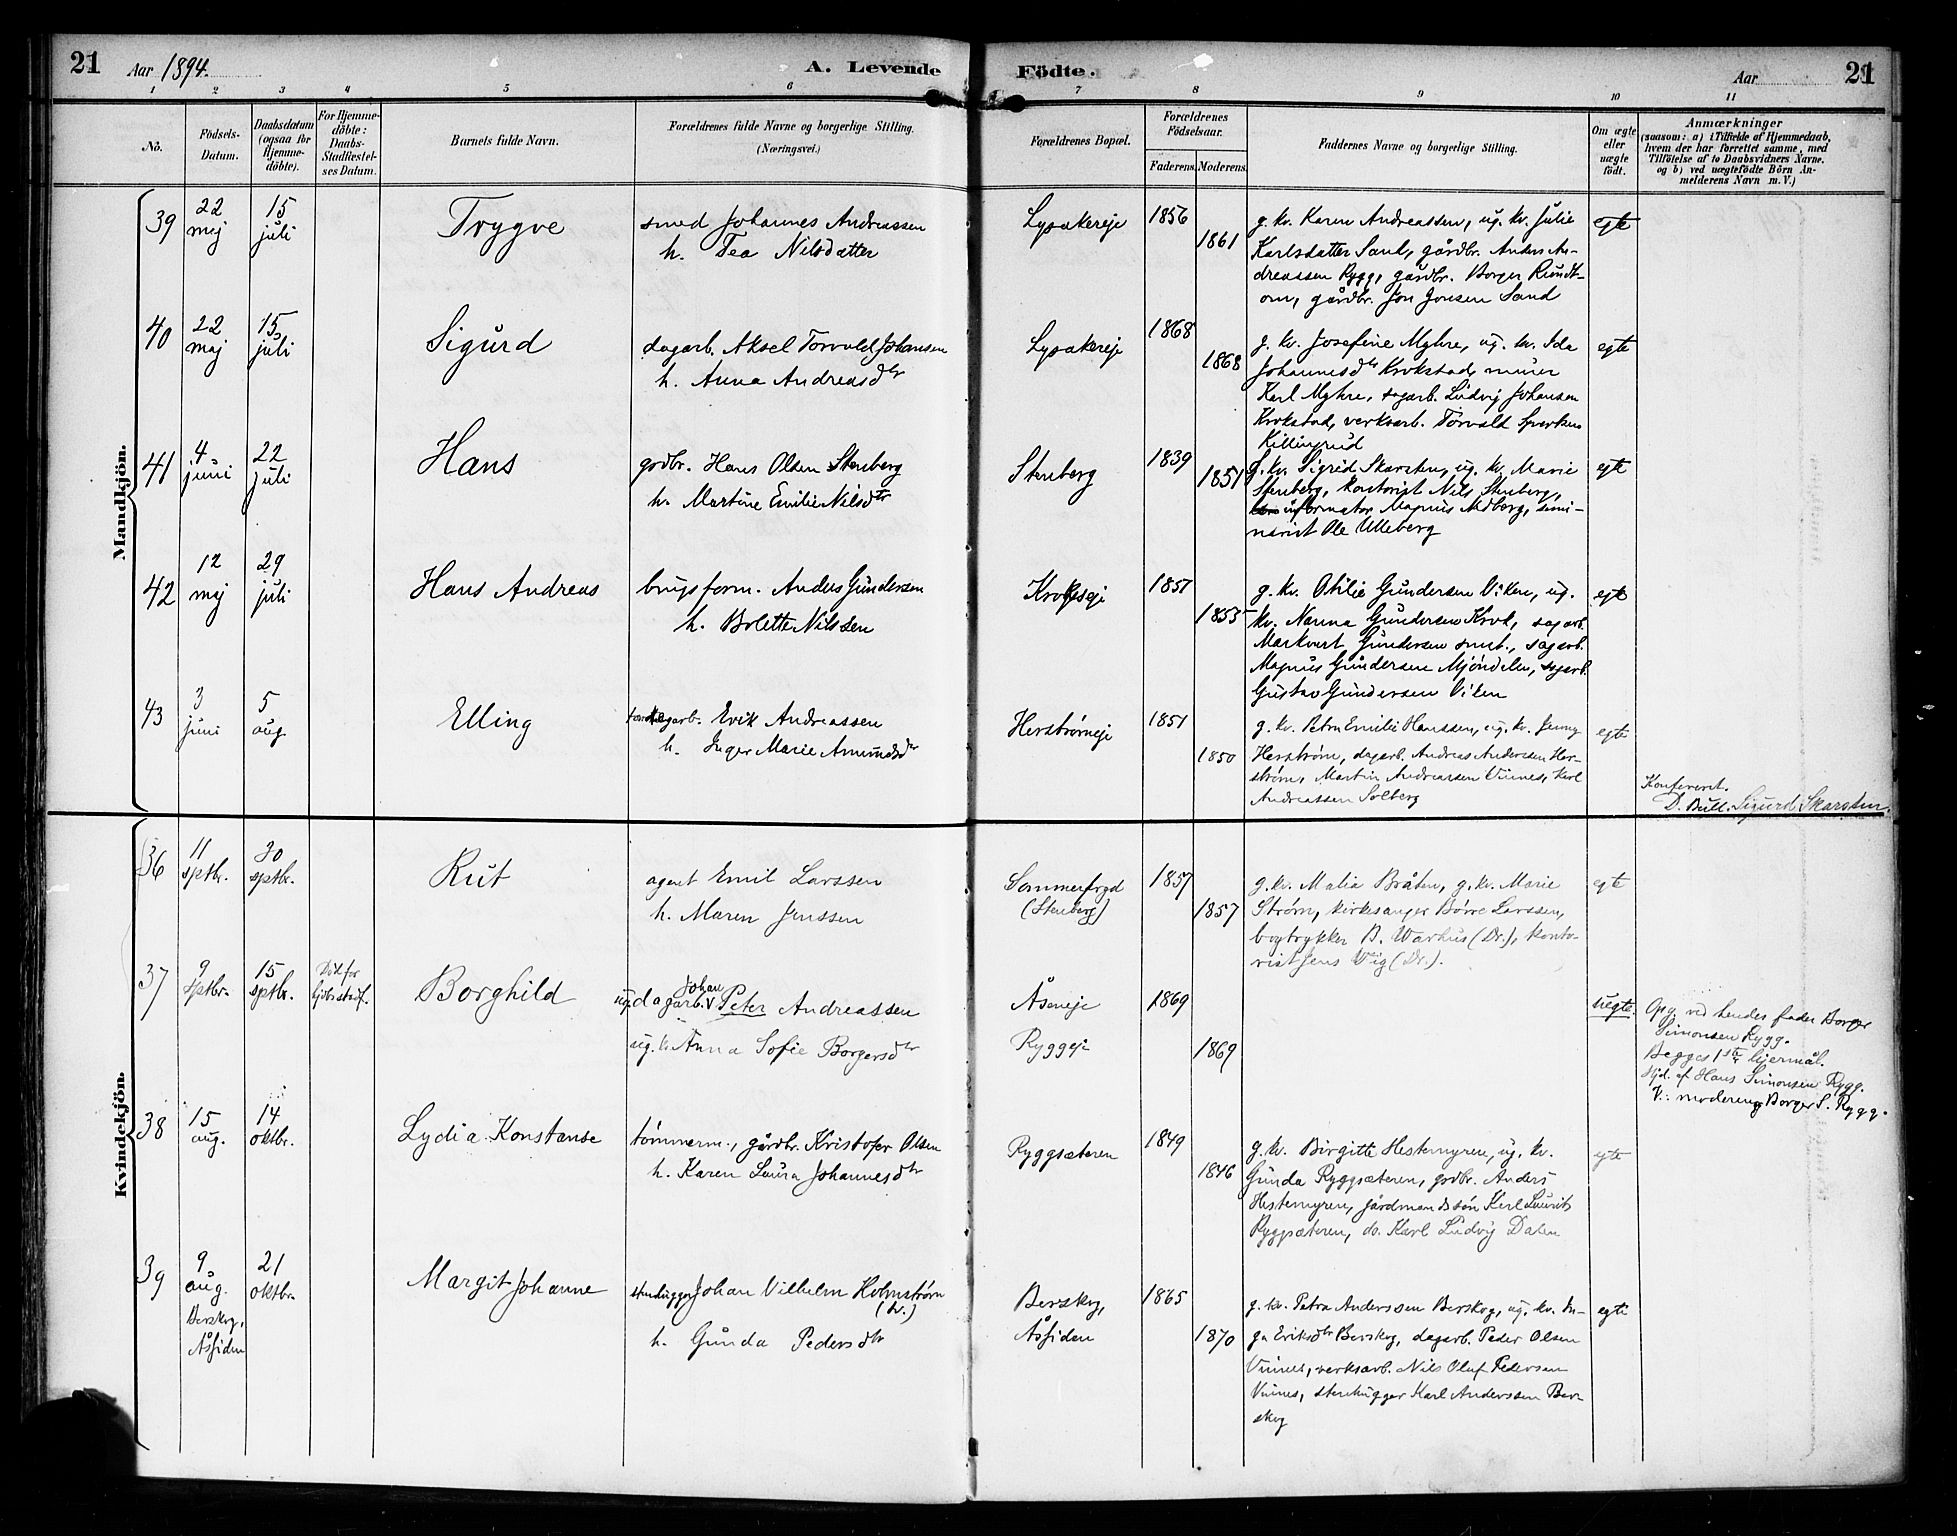 21 Aar 1894. A. Levende Födte. Aar 21
1 2 3 4 5 6 7 8 9 10 11
No. Födsels-Datum. Daabsdatum (ogsaa for Hjemme-döbte). For Hjemme-döbte: Daabs-Stadfæstel-ses Datum. Barnets fulde Navn. Forældrenes fulde Navne og borgerlige Stilling. (Næringsvei.) Forældrenes Bopæl. Forældrenes Födselsaar. Faderens. Moderens. Faddernes Navne og borgerlige Stilling. Om ægte eller uægte födt. Anmærkninger
(saasom: a) i Tilfælde af Hjemmedaab,
hvem der har forrettet samme, med
Tilföielse af to Daabsvidners Navne.
og b) ved uægtefödte Börn An-
melderens Navn m. V.)
Mandkjön.
39 22 maj 15 juli Trygve smed Johannes Andreassen
h. Tea Nilsdatter
Lysakereje 1856 1861
g. kv. Karen Andreassen, ug. kv. Julie
Karlsdatter Sand, gårdbr. Anders An-
dreassen Rygg, gårdbr. Borger Rundt-
om, gårdbr. Jon Jonsen Sand
egte
40 22 maj 15 juli Sigurd dagarb. Aksel Torvald Johansen
h. Anna Andreasdtr
Lysakereje 1868 1868
g. kv. Josefine Myhre, ug. kv. Ida
Johannesdtr Krokstad, murer
Karl Myhre, sagarb. Ludvig Johansen
Krokstad, verksarb. Torvald
Killingrud
egte
41 4 juni 22 juli Hans grdbr. Hans Olsen Stenberg
h. Martine Emilie Nilsdtr
Stenberg 1839 1851
g. kv. Sigrid Skarsten, ug. kv. Marie
Stenberg, kontorist Nils Stenberg,
informator Magnus Nedberg, semi-
narist Ole Ulleberg
egte
42 12 maj 29 juli Hans Andreas brugsform. Anders Gundersen
h. Bolette Nilssen
Krokseje 1851 1855
g. kv. Otilie Gundersen Viken, ug.
kv. Nanna Gundersen Krok, sagarb.
Markvart Gundersen smst., sagarb.
Magnus Gundersen Mjöndalen, sagarb.
Gustav Gundersen Viken
egte
43 3 juni 5 aug. Elling Erik Andreassen
h. Inger Marie Amundsdtr
Herströmeje 1851 1850
g. kv. Petra Emilie Hanssen, ug. kv. Jenny
Herström, dagarb. Andreas Andersen Her-
ström, Martin Andreassen Vinnes, Karl
Andreassen Solberg
egte
Konfereret.
D. Bull. Sigurd Skarsten.
Kvindekjön.
36 11 sptbr. 30 sptbr. Rut agent Emil Larssen
h. Maren Jenssen
Sommerfryd
(Stenberg)
1857 1857
g. kv. Malia Bråten, g. kv. Marie
Ström, kirkesanger Börre Larssen,
bogtrykker B. Warhus (Dr.), konto-
rist Jens Vig (Dr.).
egte
37 9 sptbr. 15 sptbr. Död för
Borghild
Johan
ug. dagarb. v Peter Andreassen
ug. k. Anna Sofie Borgersdtr
Åseneje
Ryggeje
1869 1869
uegte.
Opg. ved hendes fader Borger
Simonsen Rygg.
Begges 1ste lejermål.
Hjd. af Hans Simonsen Rygg.
V.: moderen og Borger S. Rygg.
38 15 aug. 14 oktbr. Lydia Konstanse tömmerm., gårdbr. Kristofer Olsen
h. Karen Laura Johannesdtr
Ryggsæteren 1849 1846
g. kv. Birgitte Hestemyren, ug. kv.
Gunda Ryggsæteren, grdbr. Anders
Hestemyren, gårdmandssön Karl Laurits
Ryggsæteren, do. Karl Ludvig Dalen
egte
39 9 aug. Berskog, Åssiden 21 oktbr. Margit Johanne stenhugger Johan Vilhelm Holmström
(sv.)
h. Gunda Pedersdtr
Berskog,
Åssiden
1865 1870
g. kv. Petra Anderssen Berskog, ug. kv. In-
ga Eriksdtr Berskog, dagarb. Peder Olsen
Vinnes, verksarb. Nils Oluf Pedersen
Vinnes, stenhugger Karl Anderssen Ber-
skog
egte